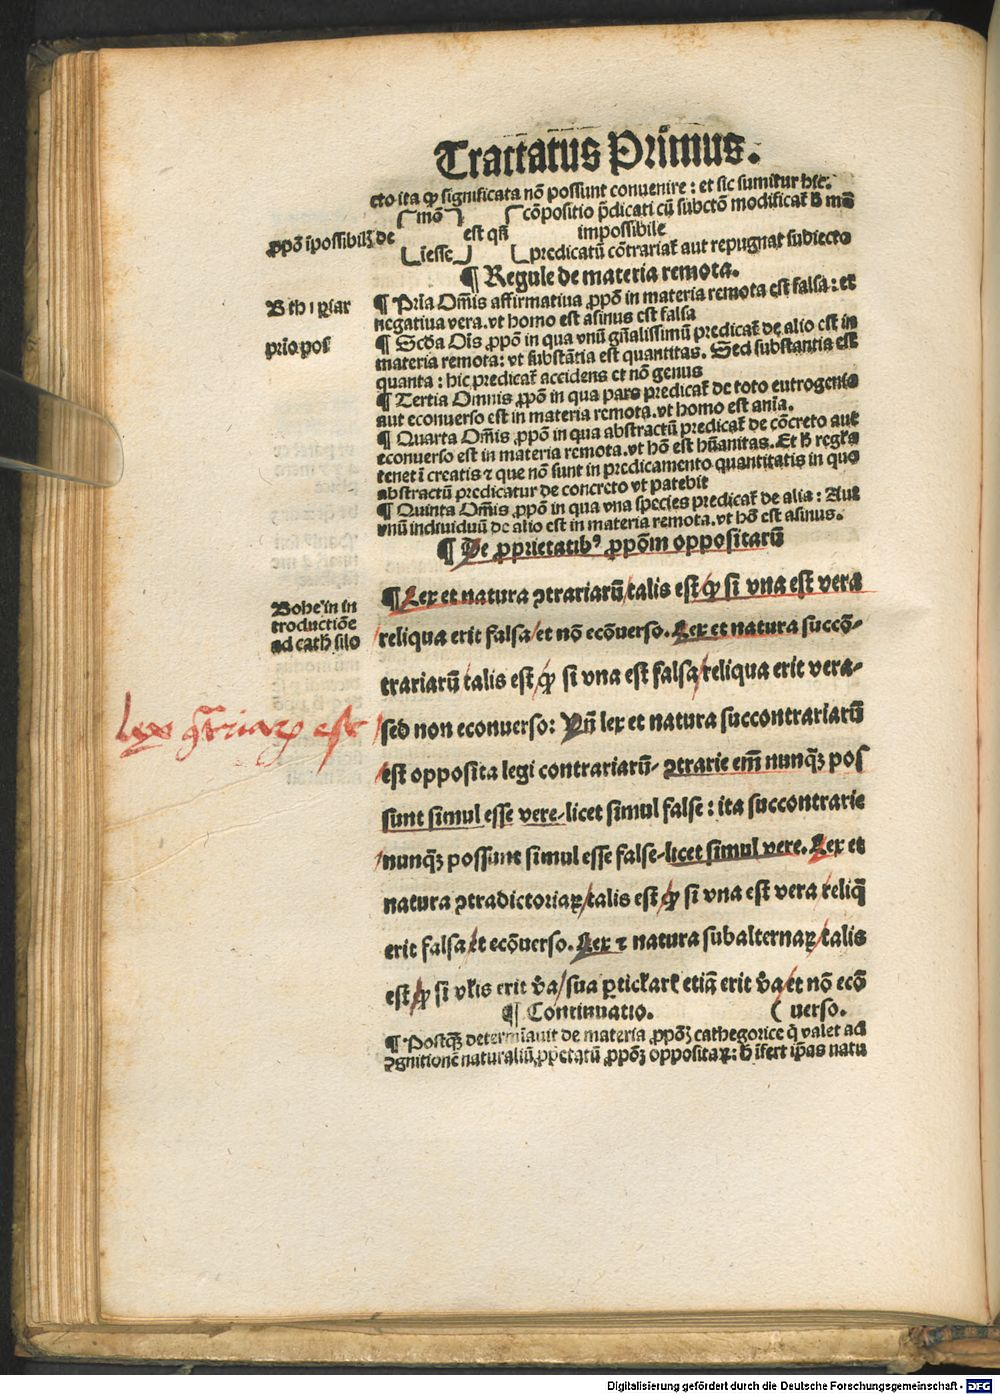 Tractatus Primus.
cto ita ꝙ significata nõ possunt conuenire: et sic sumitur hic.
mõ cõpositio p̃dicati cũ subctõ modificat̃ ħ mõ
ꝓpõ ĩpossibilꝫ de est qñ impossibile
ĩesse predicatũ cõtrariat̃ aut repugnat subiecto
¶ Regule de materia remota.
¶ Pria Om̃is affirmatiua ꝓpõ in materia remota est falsa: et
negatiua vera. vt homo est asinus est falsa
¶ Scđa Oĩs ꝓpõ in qua vnũ gñalissimũ predicat̃ de alio est in
materia remota: vt substãtia est quantitas. Sed substantia est
quanta: hic predicat̃ accidens et nõ genus
¶ Tertia Omnis ꝓpõ in qua pars predicat̃ de toto eutrogenio
aut econuerso est in materia remota. vt homo est anĩa.
¶ Quarta Om̃is ꝓpõ in qua abstractũ predicat̃ de cõcreto aut
econuerso est in materia remota. vt hõ est hũanitas. Et ħ regl̃a
tenet ĩ creatis ⁊ que nõ sunt in predicamento quantitatis in quo
abstractũ predicatur de concreto vt patebit
¶ Quinta Om̃is ꝓpõ in qua vna species predicat̃ de alia: Aut
vnũ indiuiduũ de alio est in materia remota. vt hõ est asinus.
¶ De ꝓprietatibꝰ ꝓpõm oppositarũ
¶ Lex et natura ↄtrariarũ talis est ꝙ si vna est vera
reliqua erit falsa et nõ ecõuerso. Lex et natura succõ-
trariarũ talis est ꝙ si vna est falsa reliqua erit vera-
sed non econuerso: Vñ lex et natura succontrariarũ
est opposita legi contrariarũ- ↄtrarie em̃ nunq̃ꝫ pos
sunt simul esse vere- licet simul false: ita succontrarie
nunq̃ꝫ possunt simul esse false- licet simul vere. Lex et
natura ↄtradictoriaꝝ talis est ꝙ si vna est vera reliq̃
erit falsa et ecõuerso. Lex ⁊ natura subalternaꝝ talis
est ꝙ si vl̃is erit ṽa sua ꝑticl̃aris etiã erit ṽa et nõ ecõ
¶ Continuatio. ( uerso.
¶ Postq̃ꝫ determĩauit de materia ꝓpõꝫ cathegorice q̃ valet ad
ↄgnitionẽ naturaliũ ꝓpetatũ ꝓpõꝫ oppositaꝝ: ħ ĩfert ip̃as natu
B th 1 ꝑiar
prio. pos
Bohe'in in
troductiõe
ad cath silo
lex ↄ̃triaꝝ est
Digitalisierung gefördert durch die Deutsche Forschungsgemeinschaft - DFG